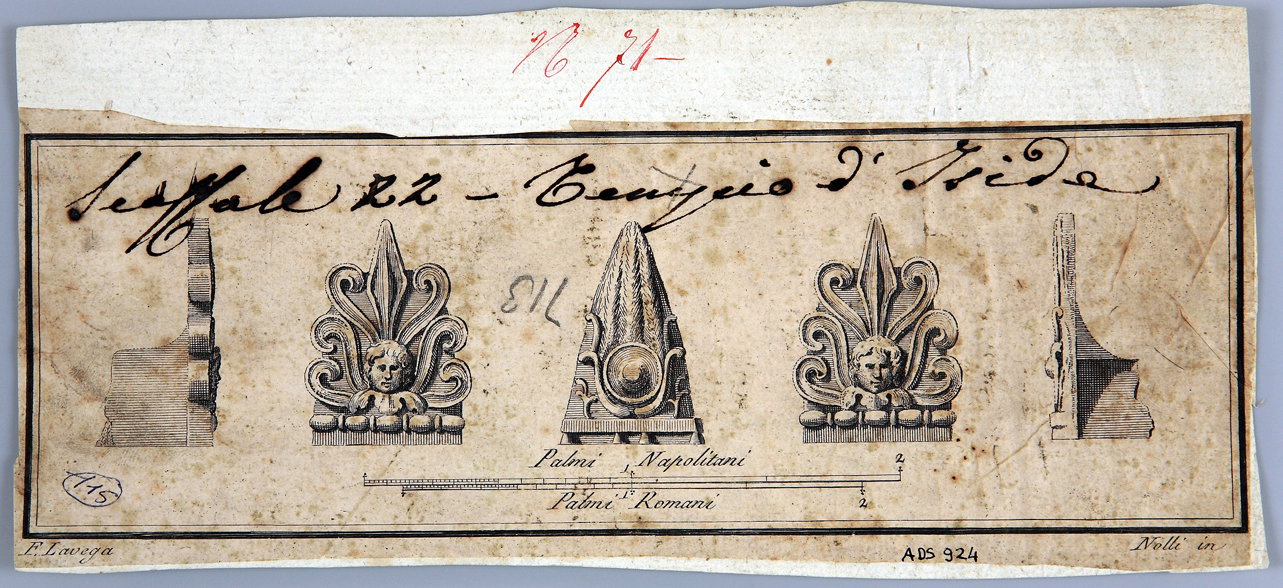 N 71-
Scaffale 22 - Tempio d'Iside
713
Palmi 1 Napolitani 2
Palmi 1 Romani 2
115
F. Lavega
ADS 924
Nolli in